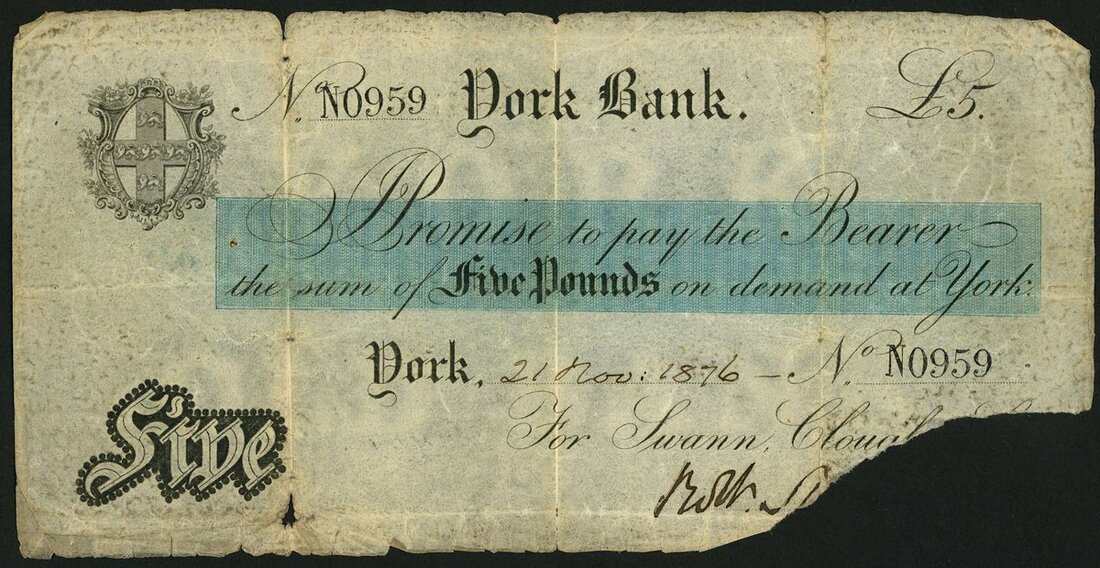 No. N0959 York Bank. £5.
I Promise to pay the Bearer
the sum of Five Pounds on demand at York.
York, 21 Nov: 1876 — No. N0959
For Swann,
Five
Robt.